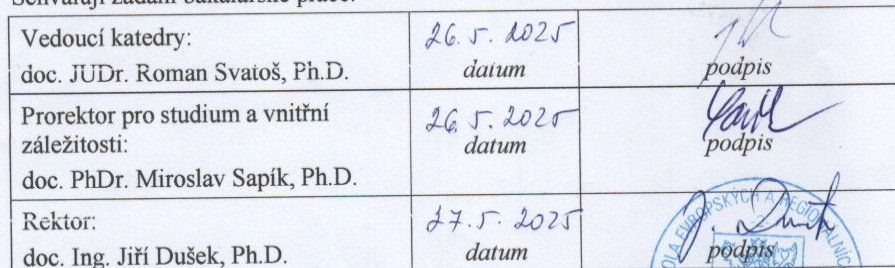 Schvaluji zadání bakalářské práce:
Vedoucí katedry:
doc. JUDr. Roman Svatoš, Ph.D.
26. 5. 2025
datum
podpis
Prorektor pro studium a vnitřní
záležitosti:
doc. PhDr. Miroslav Sapík, Ph.D.
26. 5. 2025
datum
podpis
Rektor:
doc. Ing. Jiří Dušek, Ph.D.
27. 5. 2025
datum
podpis
EVROPSKÝCH A REGIONÁLNÍCH